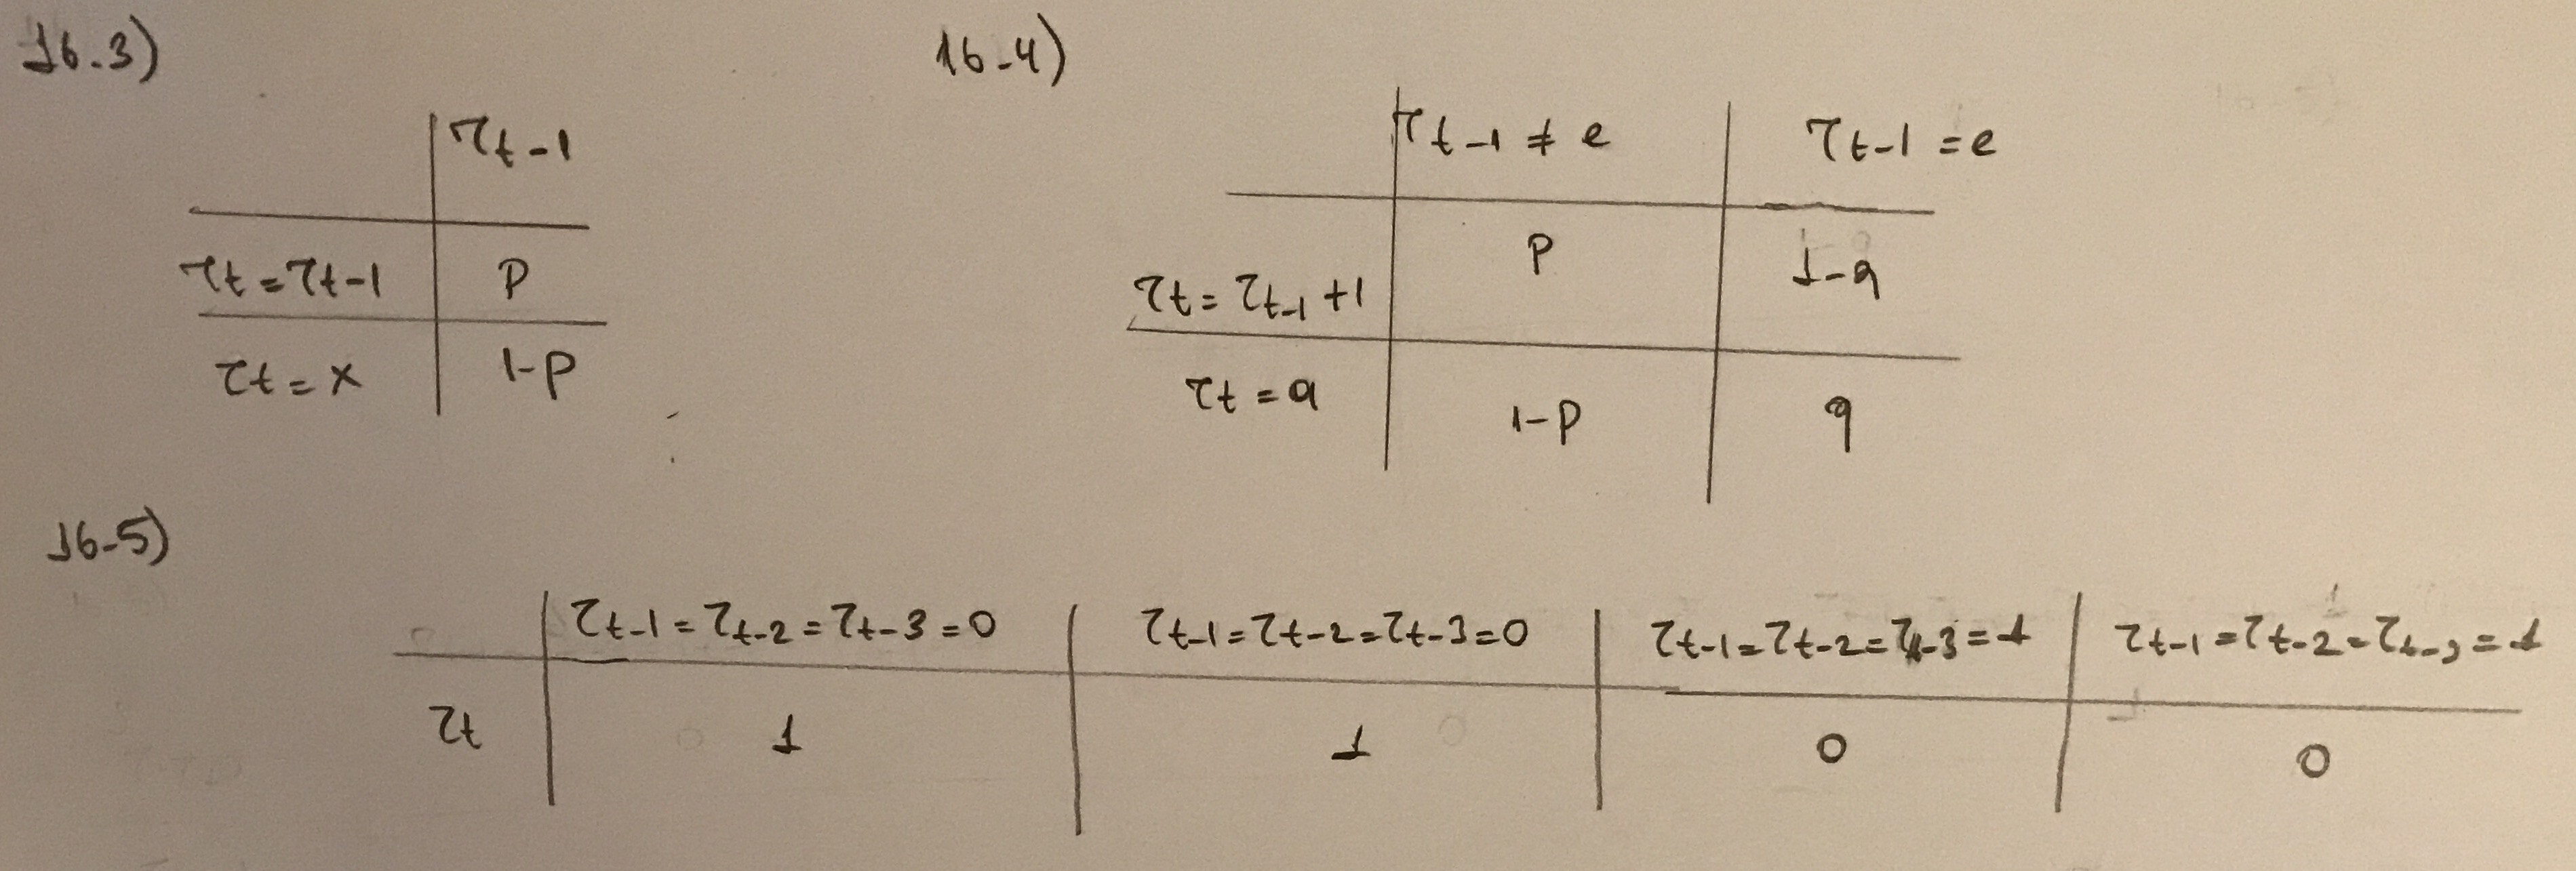 16.3)
τt-1
τt = τt-1 P
τt = x 1-P
16-4)
τt-1 ≠ e τt-1 = e
τt = τt-1 +1 P 1-q
τt = a 1-P q
16-5)
τt-1 = τt-2 = τt-3 = 0 τt-1 = τt-2 = τt-3 = 0 τt-1 = τt-2 = τt-3 = 1 τt-1 = τt-2 = τt-3 = 1
τt 1 1 0 0